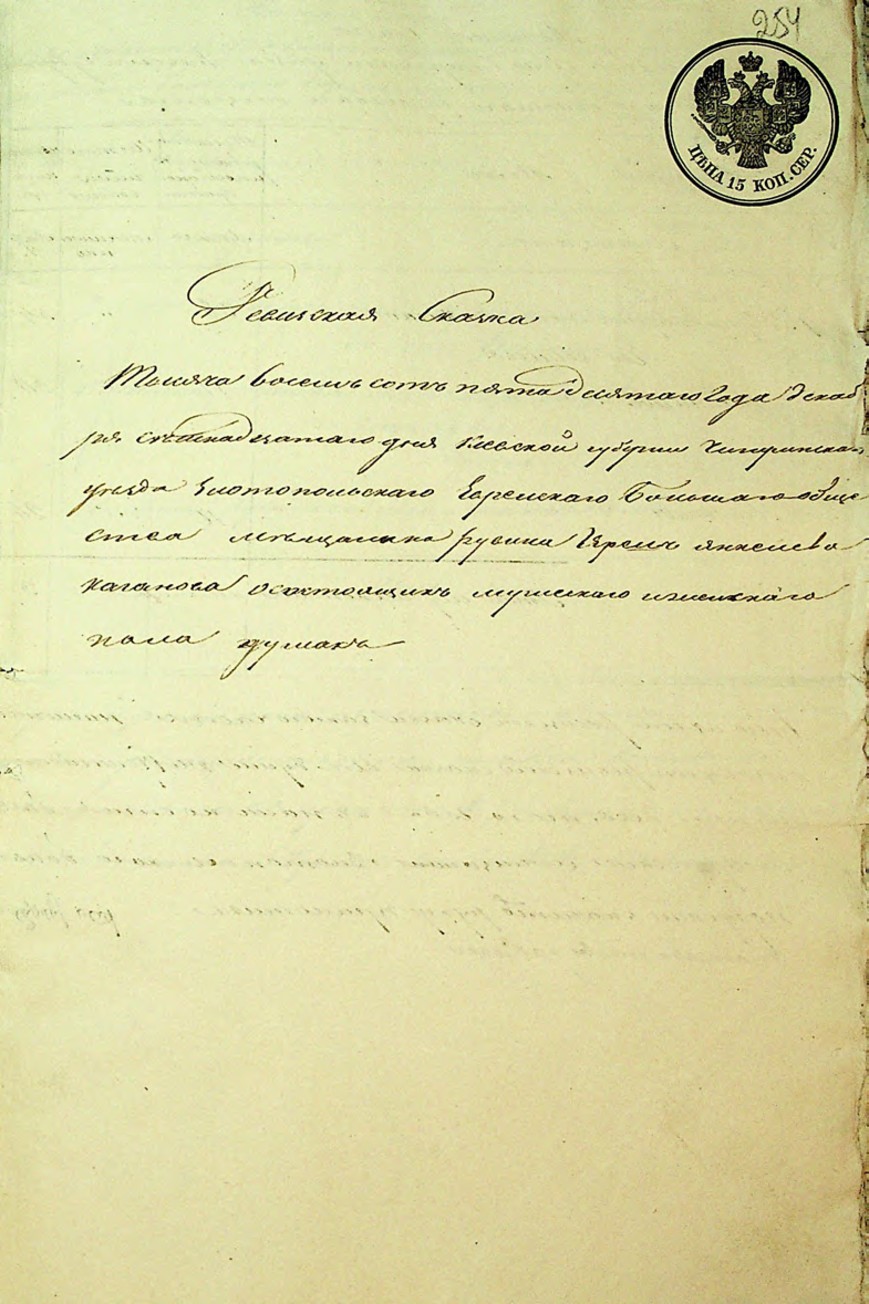 254
ЦѢНА 15 КОП. СЕР.
Ревизская Сказка
Тысяча восемь сотъ пятьдесятаго Года декаб
ря дня Кіевской губерніи Чигиринскаго
уезда Златопольскаго Еврейскаго Большаго обще
ства мѣщанина Рувина Янкелева
Каганова осостоящихъ мужескаго иженскаго
пола душахъ